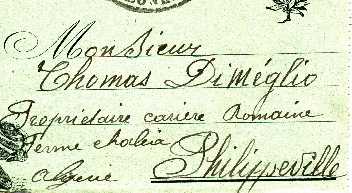 Monsieur
Thomas Diméglio
Propriétaire carière Romaine
Ferme
Philippeville